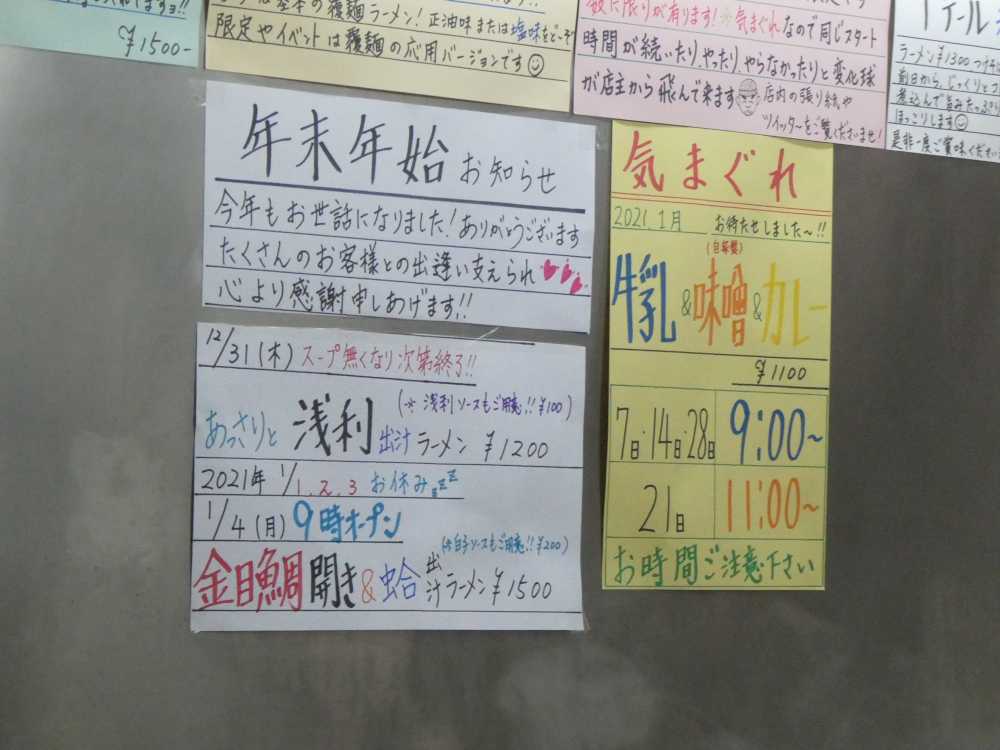 ¥1500-
は基本の覆麺ラーメン!正油味または塩味をどーぞ
限定やイベントは覆麺の応用バージョンです
数に限りが有ります!※気まぐれなので同じスタート
時間が続いたり、やったり、やらなかったりと変化球
が店主から飛んで来ます 店内の張り紙や
ツイッターをご覧くださいませ!
ラーメン¥1300
前日から、じっくりと
煮込んで旨みた
ほっこりします
是非一度ご賞味くださ
年末年始 お知らせ
今年もお世話になりました!ありがとうございます
たくさんのお客様との出逢い支えられ
心より感謝申しあげます!!
12/31(木)スープ無くなり次第終了!!
(※浅利ソースもご用意!!¥100)
あっさりと 浅利 出汁ラーメン ¥1200
2021年 1/1.2.3 お休みzzz
1/4(月)9時オープン
(※白子ソースもご用意!!¥200)
金目鯛 開き&蛤 出汁ラーメン¥1500
気まぐれ
2021.1月 お待たせしました〜!!
(自家製)
牛乳&味噌&カレー
¥1100
7日・14日・28日 9:00〜
21日 11:00〜
お時間ご注意下さい